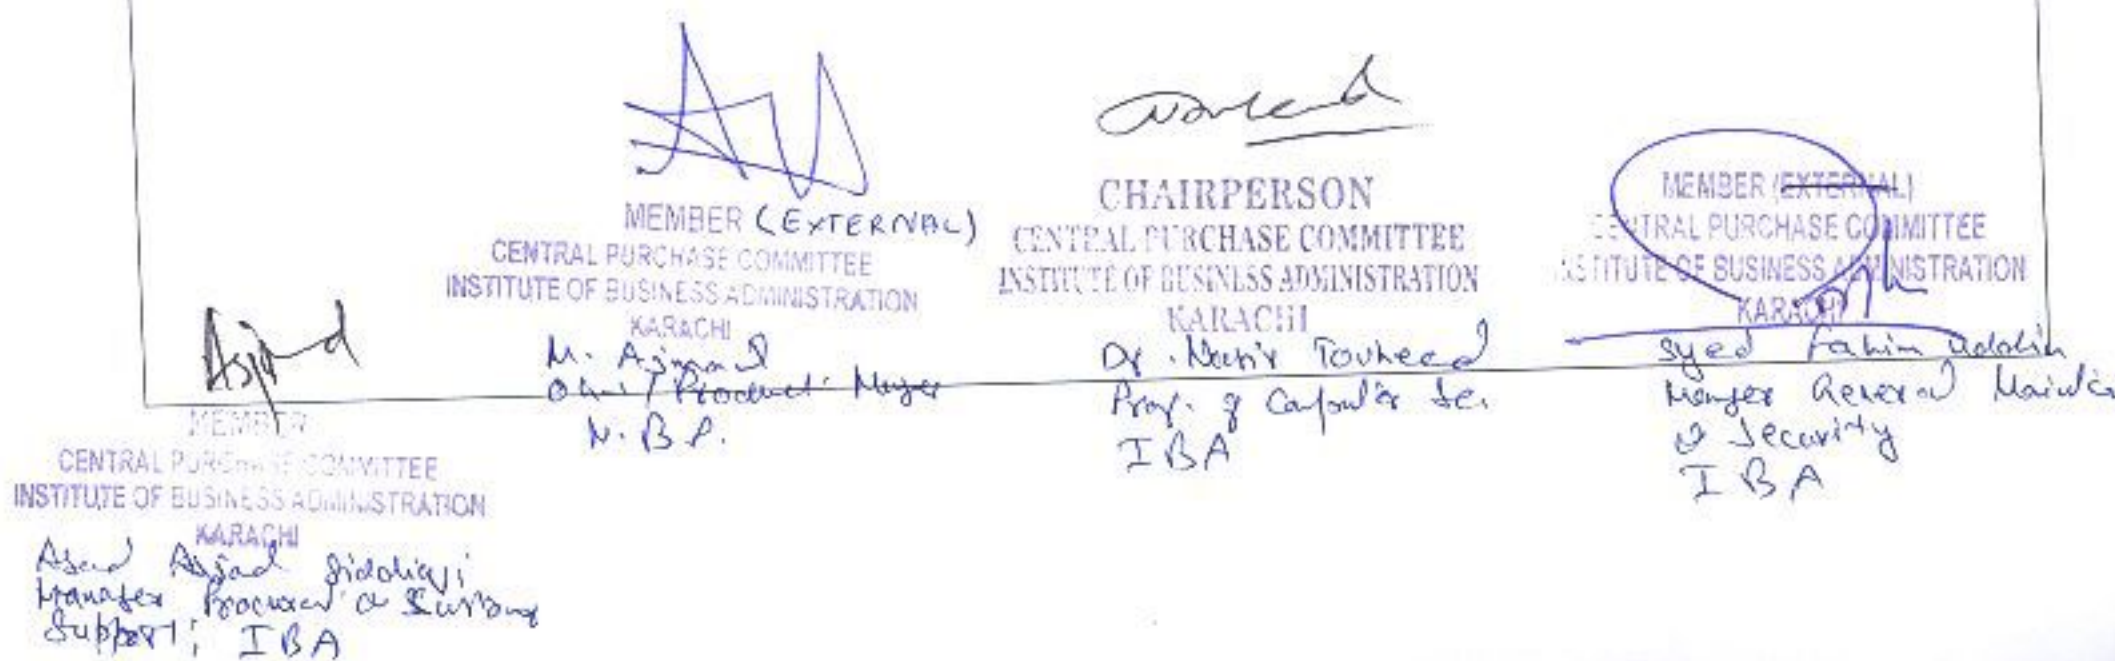 MEMBER (EXTERNAL)
CENTRAL PURCHASE COMMITTEE
INSTITUTE OF BUSINESS ADMINISTRATION
KARACHI
M. Ajmal
Product
N.B.P.
CHAIRPERSON
CENTRAL PURCHASE COMMITTEE
INSTITUTE OF BUSINESS ADMINISTRATION
KARACHI
Dr. Nasir Touheed
Prof. of
IBA
MEMBER (EXTERNAL)
CENTRAL PURCHASE COMMITTEE
INSTITUTE OF BUSINESS ADMINISTRATION
KARACHI
Syed Fahim uddin
General
& Security
IBA
Asjad
MEMBER
CENTRAL PURCHASE COMMITTEE
INSTITUTE OF BUSINESS ADMINISTRATION
KARACHI
Asjad
Manager
Support; IBA